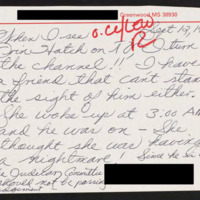 Greenwood, MS 38930
When I see
Sept 19, 1
Orin Hatch on T.V. I turn
the channel!! I have
a friend that can't stand
the sight of him either.
She woke up at 3:00 AM
and he was on - She
thought she was having
a nightmare!! Since he is
The Judiciary Committee
should not be passing
judgement